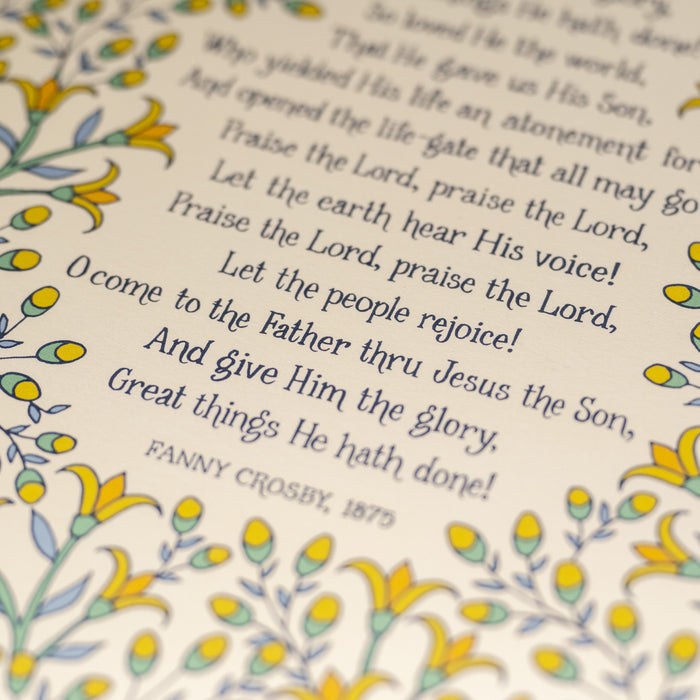 things He hath done!
So loved He the world,
That He gave us His Son,
Who yielded His life an atonement for
And opened the life-gate that all may go
Praise the Lord, praise the Lord,
Let the earth hear His voice!
Praise the Lord, praise the Lord,
Let the people rejoice!
O come to the Father thru Jesus the Son,
And give Him the glory,
Great things He hath done!
FANNY CROSBY, 1875